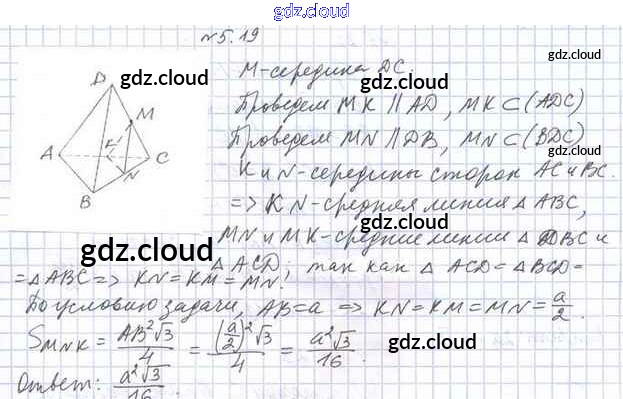 gdz.cloud
№5.19
gdz.cloud
M-середина DC.
gdz.cloud
Проведем MK || AD, MK ⊂ (ADC)
Проведем MN || DB, MN ⊂ (BDC)
gdz.cloud
K и N-середины сторон AC и BC.
=> KN-средняя линия △ ABC,
gdz.cloud
MN и MK-средние линии △ DBC и
△ ACD; так как △ ACD = △ BCD =
gdz.cloud
= △ ABC => KN = KM = MN.
По условию задачи, AB = a => KN = KM = MN = a/2.
S MNK = AB²√3/4 = (a/2)²√3/4 = a²√3/16.
gdz.cloud
Ответ: a²√3/16.
gdz.cloud
D
M
A
K
C
N
B